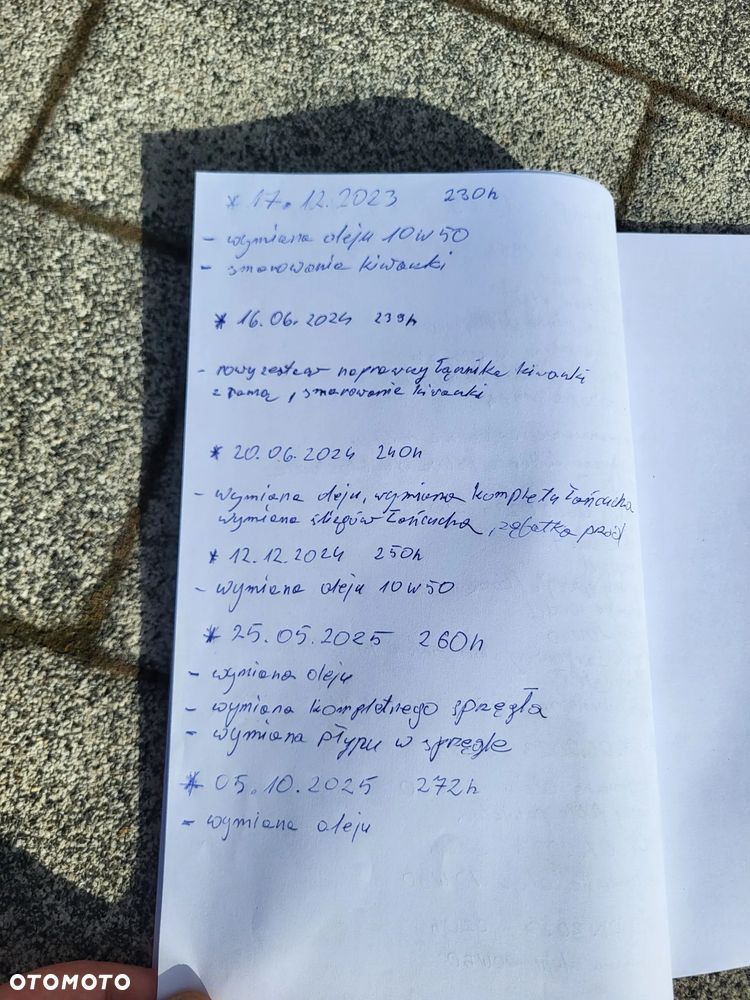 * 17.12.2023 230h
- wymiana oleju 10w50
- smarowanie kiwaczki
* 16.06.2024 239h
- nowy zestaw naprawczy łącznika kiwaczki
z ramą, smarowanie kiwaczki
* 20.06.2024 240h
- wymiana oleju, wymiana kompletu łańcucha
wymiana ślizgów łańcucha, zębatka przód
* 12.12.2024 250h
- wymiana oleju 10w50
* 25.05.2025 260h
- wymiana oleju
- wymiana kompletnego sprzęgła
- wymiana płynu w sprzęgle
* 05.10.2025 272h
- wymiana oleju
OTOMOTO